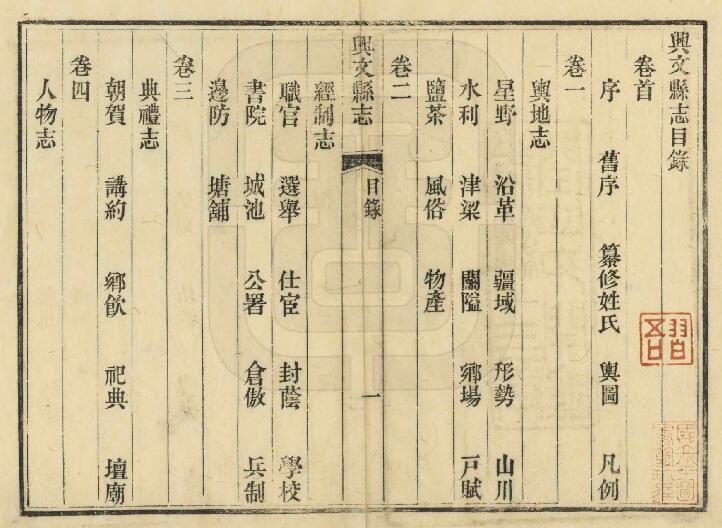 興文縣志目錄
卷首
序 舊序 纂修姓氏 輿圖 凡例
卷一
輿地志
星野 沿革 疆域 形勢 山川
水利 津梁 關隘 鄉場 戸賦
鹽茶 風俗 物產
卷二
興文縣志 目錄 一
經制志
職官 選舉 仕宦 封蔭 學校
書院 城池 公署 倉廒 兵制
邊防 塘舖
卷三
典禮志
朝賀 講約 鄉飲 祀典 壇廟
卷四
人物志